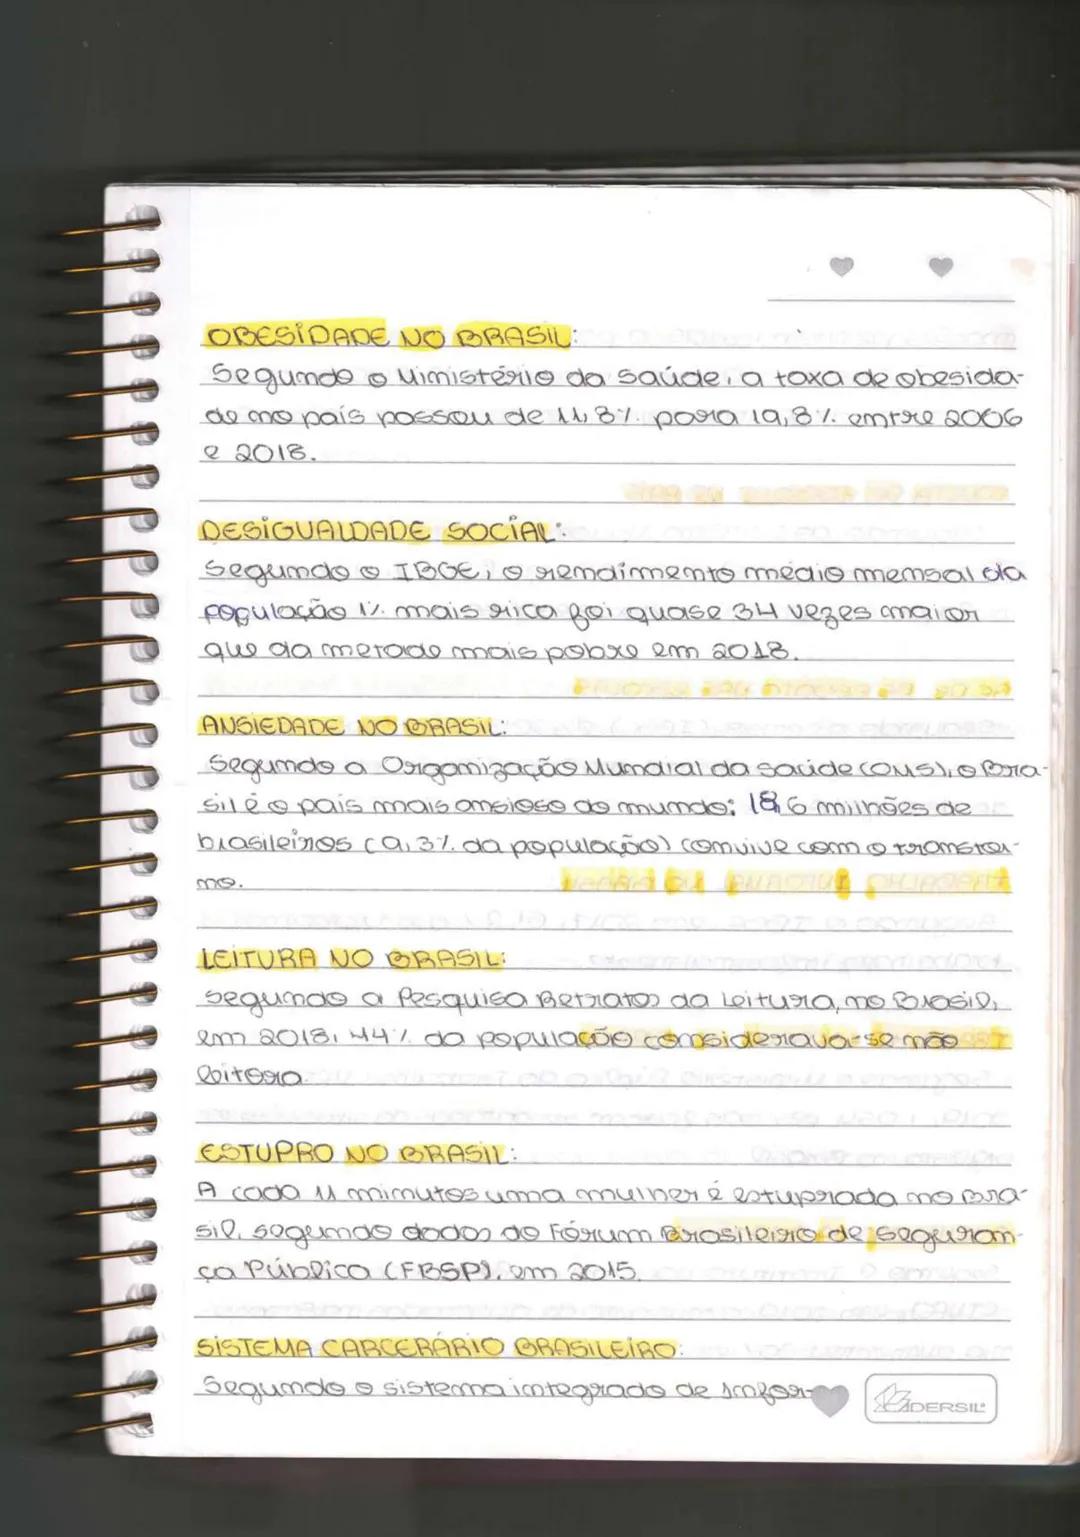 OBESIDADE NO BRASIL:
Segundo o Ministério da Saúde, a taxa de obesida-
de no país passou de 11,8% para 19,8% entre 2006
e 2018.
DESIGUALDADE SOCIAL:
Segundo o IBGE, o rendimento médio mensal da
população 1% mais rica foi quase 34 vezes maior
que da metade mais pobre em 2018.
ANSIEDADE NO BRASIL:
Segundo a Organização Mundial da Saúde (OMS), o Bra-
sil é o país mais ansioso do mundo: 18,6 milhões de
brasileiros (9,3% da população) convive com o transtor-
no.
LEITURA NO BRASIL:
Segundo a Pesquisa Retratos da Leitura, no Brasil,
em 2018, 44% da população considerava-se não
leitora.
ESTUPRO NO BRASIL:
A cada 11 minutos uma mulher é estuprada no Bra-
sil, segundo dados do Fórum Brasileiro de Seguran-
ça Pública (FBSP), em 2015.
SISTEMA CARCERÁRIO BRASILEIRO:
Segundo o sistema integrado de Infor-
CADERSIL